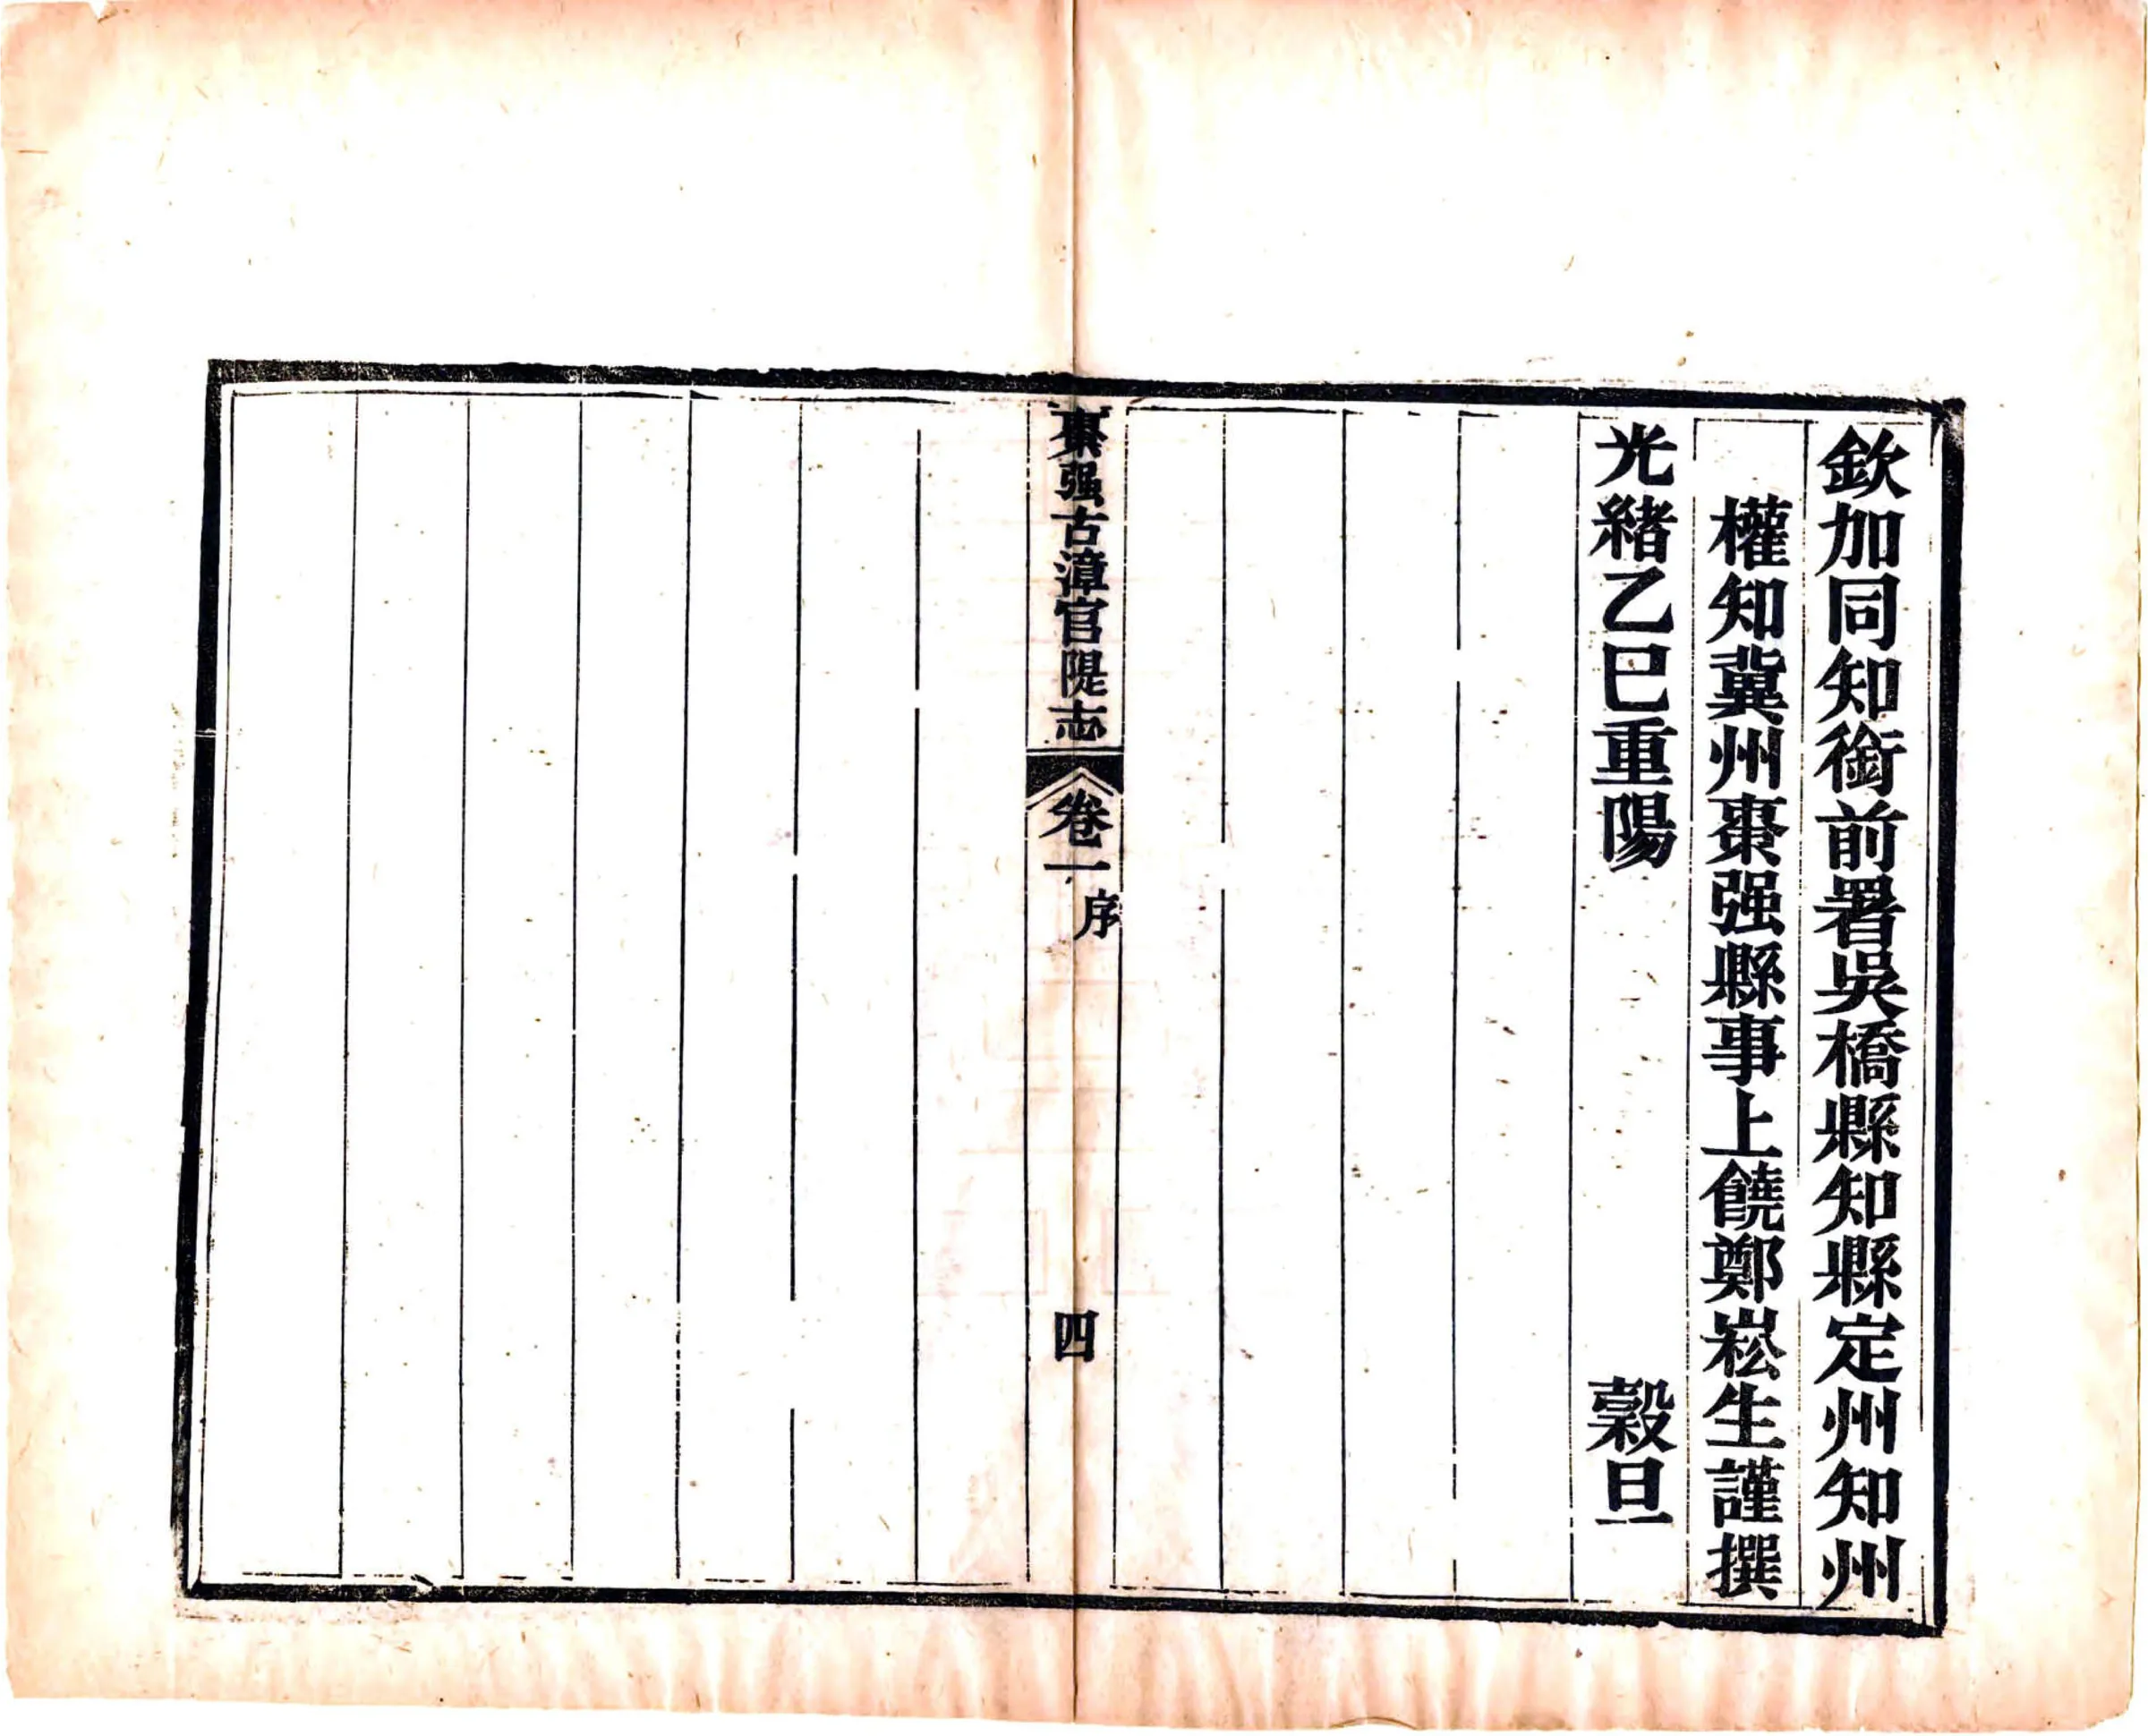 欽加同知銜前署吳橋縣知縣定州知州
權知冀州棗强縣事上饒鄭崧生謹撰
光緒乙巳重陽 穀旦
棗强古漳官隄志 卷一 序 四